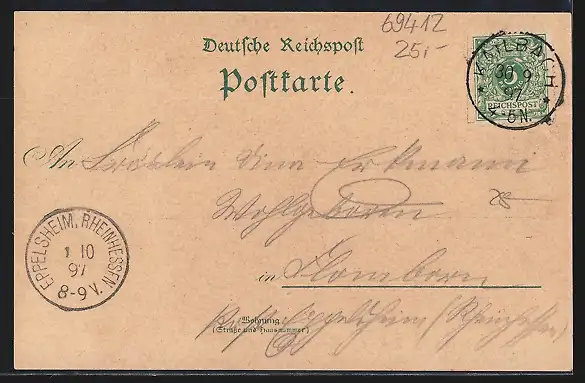 69412
25,-
Deutsche Reichspost
Postkarte.
KAILBACH
30 9
97
4-5N.
REICHSPOST
An Fräulein Lina Erkmann
Wohlgeboren
EPPELSHEIM, RHEINHESSEN.
1 10
97
8-9 V.
in Flomborn
Wohnung
(Straße und Hausnummer)
Eppelsheim (Rheinhessen)